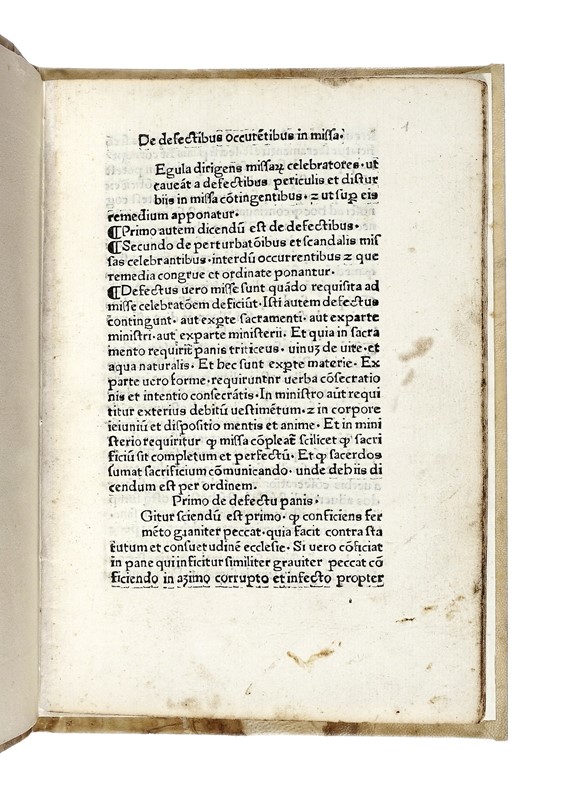 De defectibus occurẽtibus in missa.
Egula dirigens missaꝝ celebratores · ut
caueãt a defectibus periculis et distur
biis in missa cõtingentibus · ⁊ ut suꝑ eis
remedium apponatur.
¶Primo autem dicendũ est de defectibus.
¶Secundo de perturbatõibus et scandalis mis
sas celebrantibus · interdũ occurrentibus ⁊ que
remedia congrue et ordinate ponantur.
¶Defectus uero misse sunt quãdo requisita ad
misse celebratõem deficiũt · Isti autem defectus
contingunt · aut exꝑte sacramenti · aut exparte
ministri · aut exparte ministerii. Et quia in sacra
mento requirit᷑ panis triticeus · uinuꝫ de uite · et
aqua naturalis. Et hec sunt exꝑte materie. Ex
parte uero forme · requiruntnr uerba cõsecratio
nis et intentio consecrãtis · In ministro aũt requi
titur exterius debitũ uestimẽtum · ⁊ in corpore
ieiuniũ et dispositio mentis et anime. Et in mini
sterio requiritur ꝙ missa cõpleat᷑ scilicet ꝙ sacri
ficiũ sit completum et perfectũ. Et ꝙ sacerdos
sumat sacrificium cõmunicando · unde de biis di
cendum est per ordinem.
Primo de defectu panis.
Gitur sciendũ est primo · ꝙ conficiens fer
mẽto grauiter peccat · quia facit contra sta
tutum et consuetudinẽ ecclesie. Si uero cõficiat
in pane qui inficitur similiter grauiter peccat cõ
ficiendo in aꝫimo corrupto et infecto propter